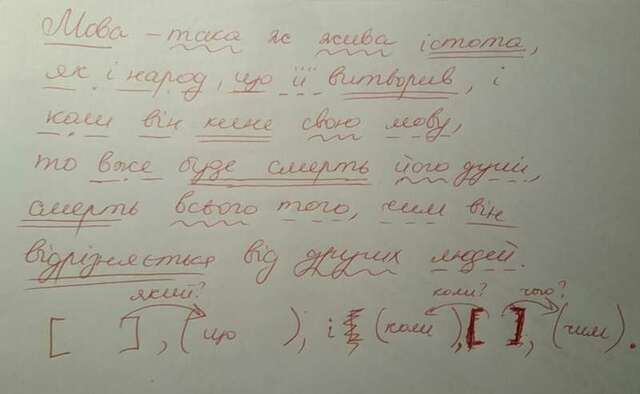 Мова – така ж жива істота,
як і народ, що її витворив, і
коли він кине свою мову,
то вже буде смерть його душі,
смерть всього того, чим він
відрізняється від других людей.
який? коли? чого?
[ ], (що ), і (коли ), [ ], (чим ).